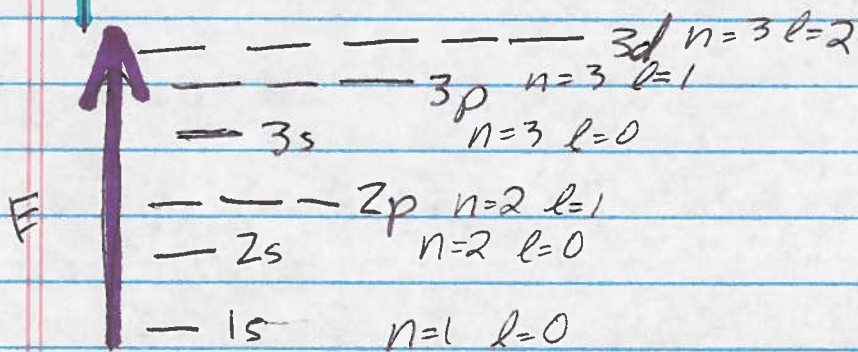 3d n=3 l=2
3p n=3 l=1
3s n=3 l=0
E
2p n=2 l=1
2s n=2 l=0
1s n=1 l=0